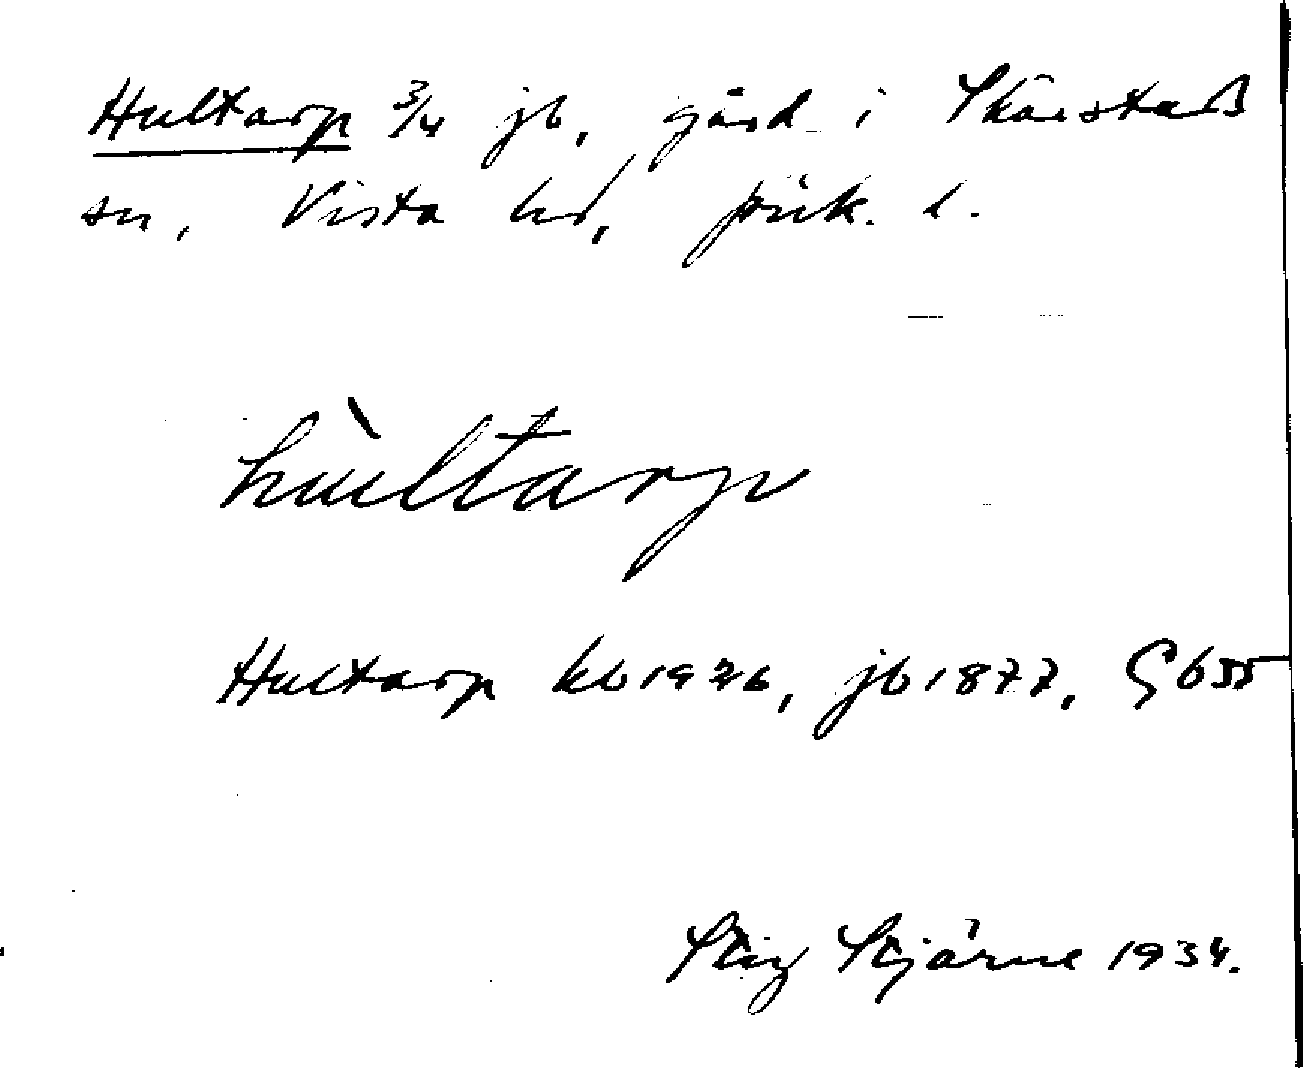 Hultarp 3/4 jb, gård i Skärstads
sn, Vista hd, Jönk. l.
hùltarp
Hultarp kb 1926, jb 1877, G 655
Stig Stjärne 1934.